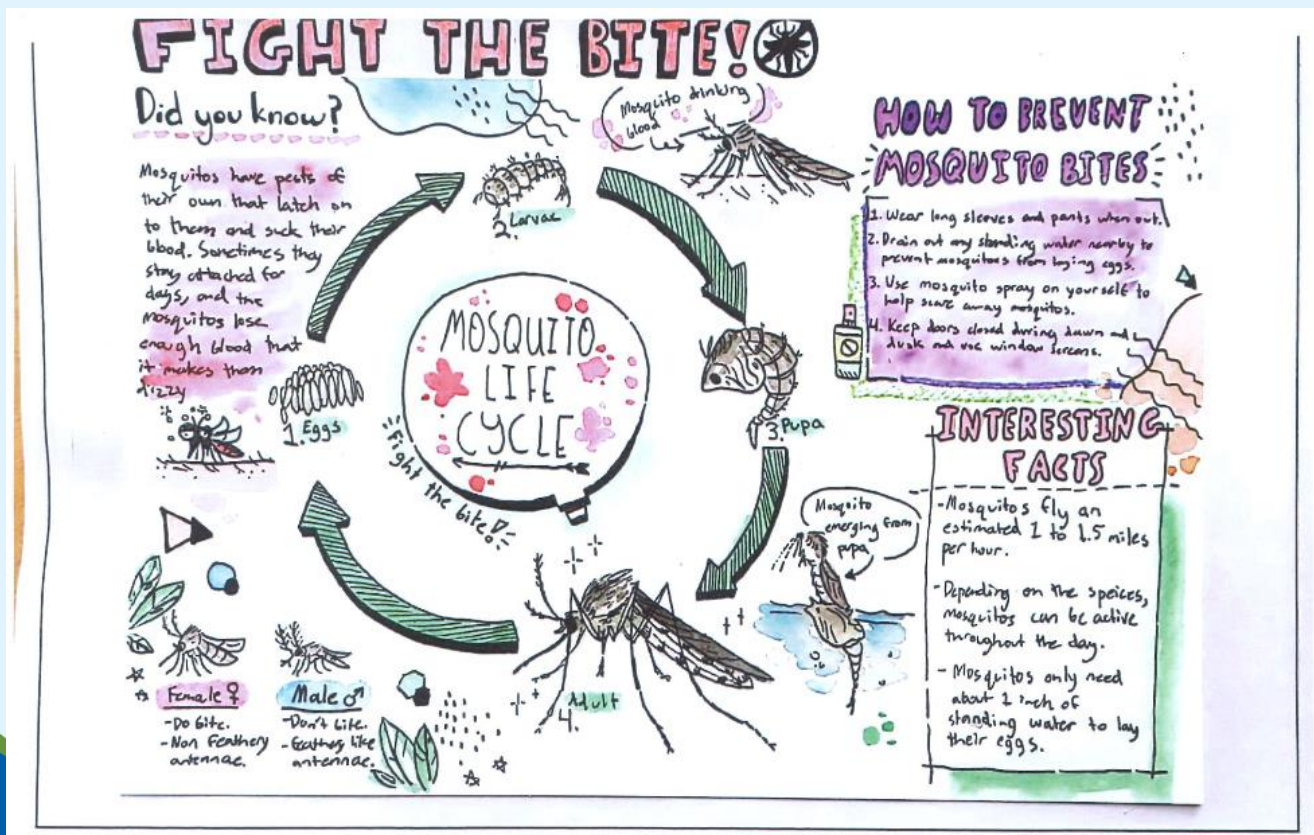 FIGHT THE BITE!
Did you know?
Mosquitos have pests of
their own that latch on
to them and suck their
blood. Sometimes they
stay attached for
days, and the
mosquitos lose
enough blood that
it makes them
dizzy
Mosquito drinking
blood
1. Eggs
2. Larvae
3. Pupa
4. Adult
MOSQUITO
LIFE
CYCLE
Fight the bite!
Mosquito
emerging from
pupa
Female ♀
-Do bite.
-Non Feathery
antennae.
Male ♂
-Don't bite.
-feathery like
antennae.
HOW TO PREVENT
MOSQUITO BITES
1. Wear long sleeves and pants when out.
2. Drain out any standing water nearby to
prevent mosquitoes from laying eggs.
3. Use mosquito spray on yourself to
help scare away mosquitos.
4. Keep doors closed during dawn and
dusk and use window screens.
INTERESTING
FACTS
-Mosquitos fly an
estimated 1 to 1.5 miles
per hour.
-Depending on the speices,
mosquitos can be active
throughout the day.
- Mosquitos only need
about 1 inch of
standing water to lay
their eggs.